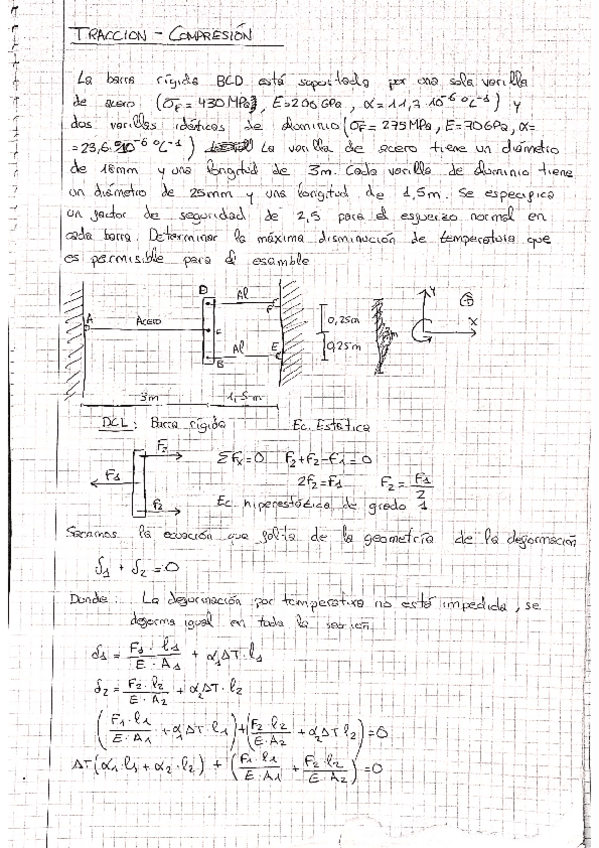 TRACCION - COMPRESIÓN
La barra rígida BCD está soportada por una sola varilla
de acero (σF = 430 MPa, E=200 GPa, α=11,7·10⁻⁶ °C⁻¹) y
dos varillas idéticas de aluminio (σF = 275MPa, E=70GPa, α=
=23,6·10⁻⁶ °C⁻¹) La varilla de acero tiene un diámetro
de 18mm y una longitud de 3m. Cada varilla de aluminio tiene
un diámetro de 25mm y una longitud de 1,5m. Se especifica
un factor de seguridad de 2,5 para el esfuerzo normal en
cada barra. Determinar la máxima disminución de temperatura que
es permisible para el
D
Al
F
A
ACERO
C
0,25m
Y
+
X
Al
E
B
0,25m
3m
1,5m
DCL: Barra rígida
Ec. Estática
F2
F1
F2
ΣFx=0 F2+F2-F1=0
2F2=F1 F2=F1/2
Ec hiperestática de grado 1
Sacamos la ecuación que salta de la geometría de la deformación
δ1 + δ2 = 0
Donde: La deformación por temperatura no está impedida, se
deforma igual en toda la sección
δ1 = F1·l1/E·A1 + α1ΔT·l1
δ2 = F2·l2/E·A2 + α2ΔT·l2
(F1·l1/E·A1 + α1ΔT·l1)+(F2·l2/E·A2 + α2ΔT l2)=0
ΔT(α1·l1+α2·l2) + (F1·l1/E·A1 + F2·l2/E·A2)=0